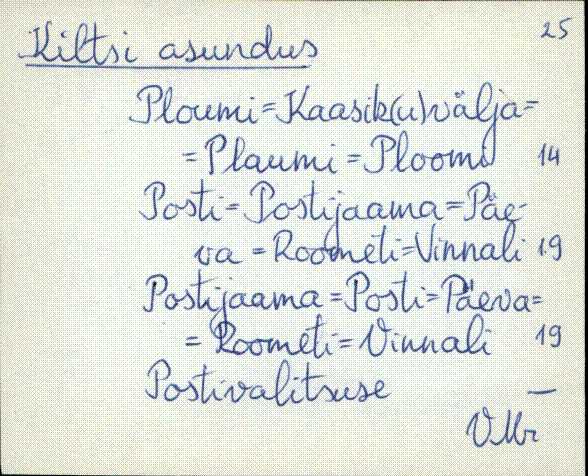 25
Kiltsi asundus
Ploumi=Kaasik(u)välja=
=Plaumi=Ploomi 14
Posti=Postijaama=Päe-
va=Roometi=Vinnali 19
Postijaama=Posti=Päeva=
=Roometi=Vinnali 19
Postivalitsuse —
VMr